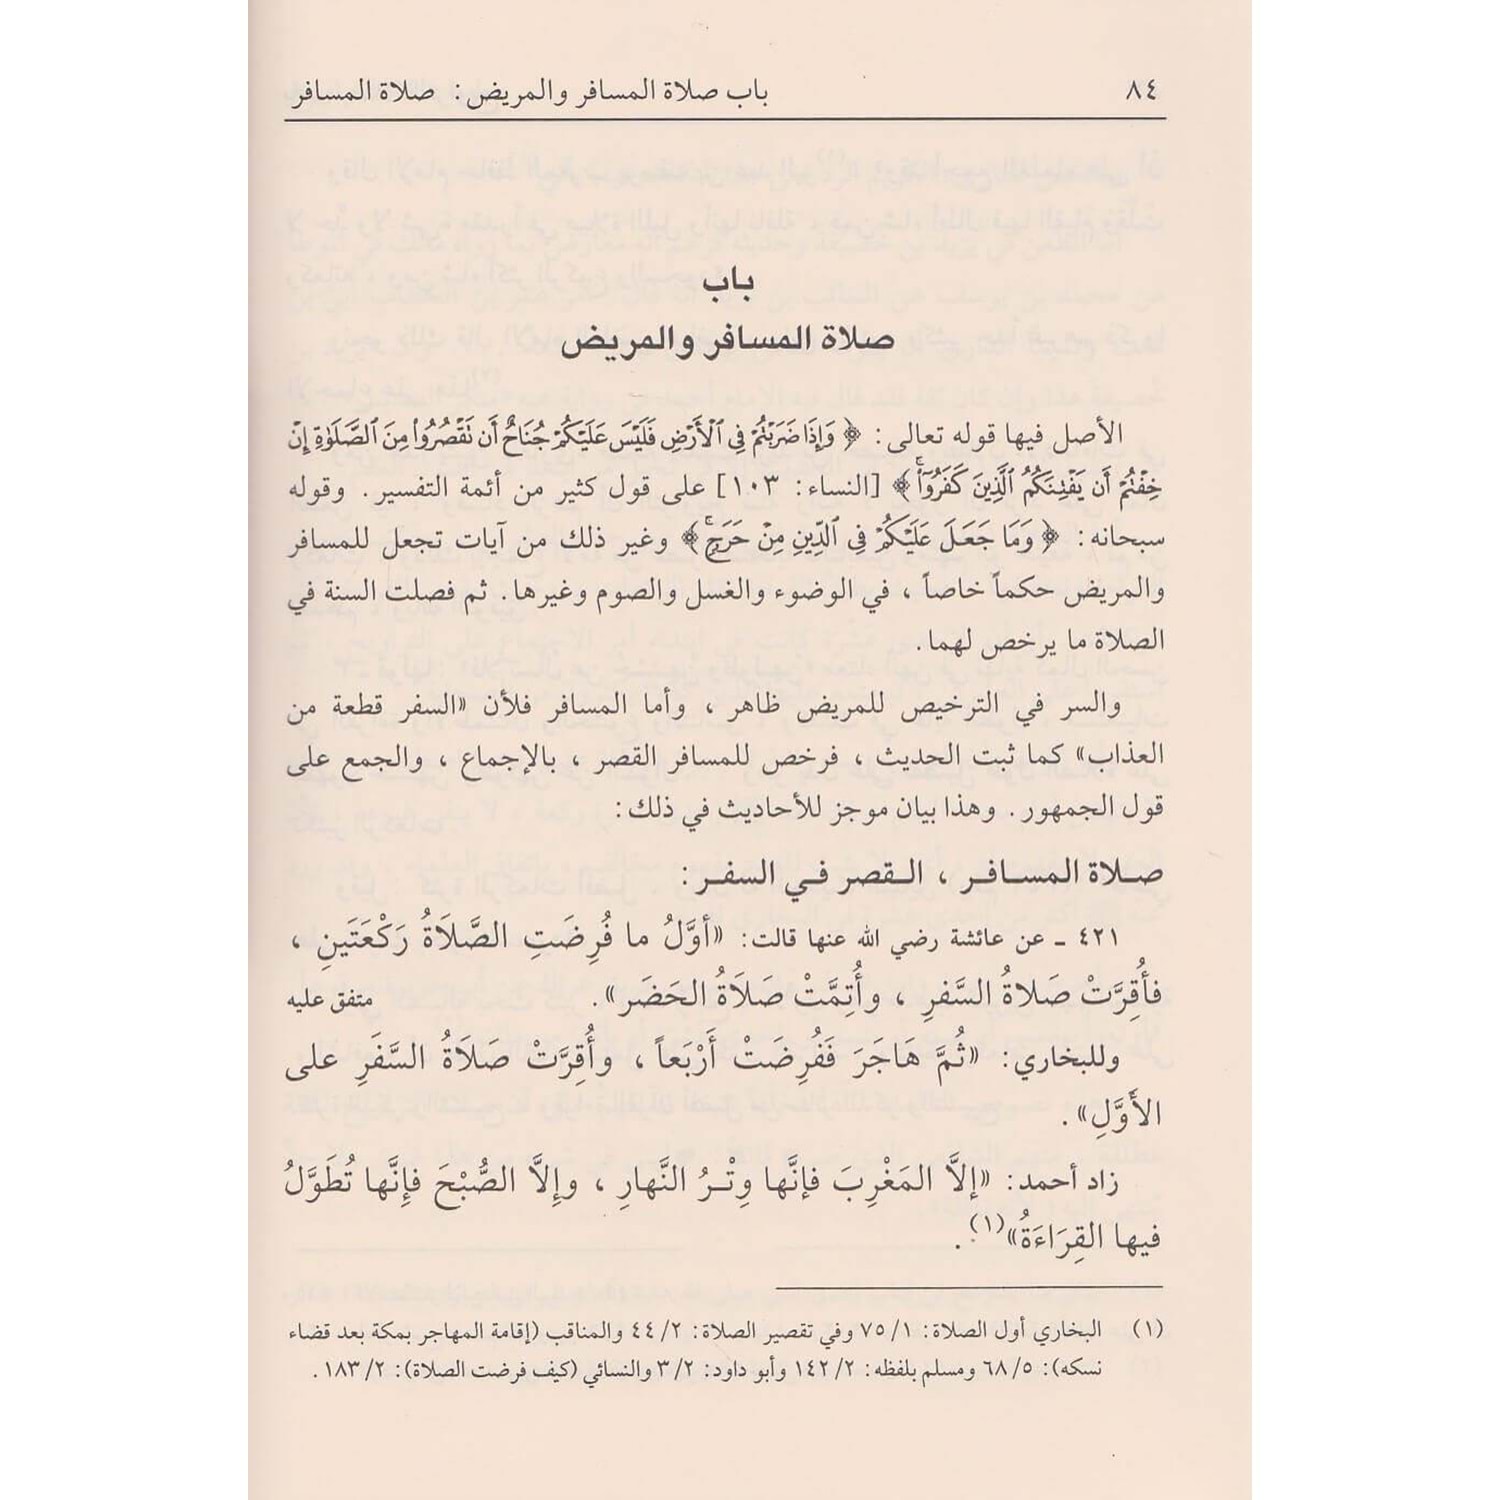 ٨٤
باب صلاة المسافر والمريض: صلاة المسافر
باب
صلاة المسافر والمريض
الأصل فيها قوله تعالى: ﴿ وَإِذَا ضَرَبْتُمْ فِي ٱلْأَرْضِ فَلَيْسَ عَلَيْكُمْ جُنَاحٌ أَن نَقْصُرُوا۟ مِنَ ٱلصَّلَوٰةِ إِنْ
خِفْتُمْ أَن يَفْتِنَكُمُ ٱلَّذِينَ كَفَرُوٓا۟ۚ ﴾ [النساء: ١٠٣] على قول كثير من أئمة التفسير. وقوله
سبحانه: ﴿ وَمَا جَعَلَ عَلَيْكُمْ فِي ٱلدِّينِ مِنْ حَرَجٍۚ ﴾ وغير ذلك من آيات تجعل للمسافر
والمريض حكماً خاصاً ، في الوضوء والغسل والصوم وغيرها. ثم فصلت السنة في
الصلاة ما يرخص لهما.
والسر في الترخيص للمريض ظاهر ، وأما المسافر فلأن «السفر قطعة من
العذاب» كما ثبت الحديث ، فرخص للمسافر القصر ، بالإجماع ، والجمع على
قول الجمهور. وهذا بيان موجز للأحاديث في ذلك:
صلاة المسافر ، القصر في السفر:
٤٢١ ـ عن عائشة رضي الله عنها قالت: «أوَّلُ ما فُرِضَتِ الصَّلَاةُ رَكْعَتَينِ ،
فأُقِرَّتْ صَلَاةُ السَّفرِ ، وأُتِمَّتْ صَلَاةُ الحَضَر». متفق عليه
وللبخاري: «ثُمَّ هَاجَرَ فَفُرِضَتْ أَرْبَعاً ، وأُقِرَّتْ صَلَاةُ السَّفَرِ على
الأَوَّلِ».
زاد أحمد: «إلاَّ المَغْرِبَ فإنَّها وِتْرُ النَّهارِ ، وإِلاَّ الصُّبْحَ فإِنَّها تُطَوَّلُ
فيها القِرَاءَةُ»(١).
(١) البخاري أول الصلاة: ١/ ٧٥ وفي تقصير الصلاة: ٢/ ٤٤ والمناقب (إقامة المهاجر بمكة بعد قضاء
نسكه): ٥/ ٦٨ ومسلم بلفظه: ٢/ ١٤٢ وأبو داود: ٢/ ٣ والنسائي (كيف فرضت الصلاة): ٢/ ١٨٣.